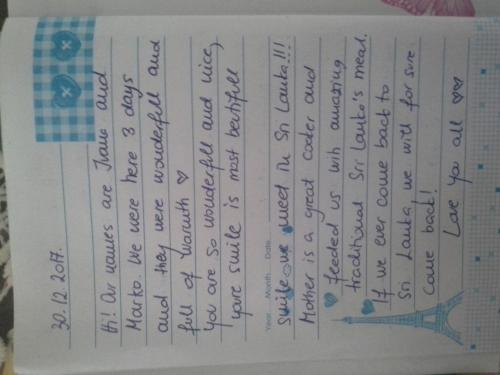 30.12.2017.
Hi! Our names are Ivano and
Marko. We were here 3 days
and they were wonderfull and
full of warmth
You are so wonderfull and nice,
youre smile is most beutifull
Year. Month. Date.
smile we meet in Sri Lanka!!!
Mother is a great cooker and
feeded us with amazing
traditional Sri Lanka's meal.
If we ever come back to
Sri Lanka, we will for sure
come back!
Love you all